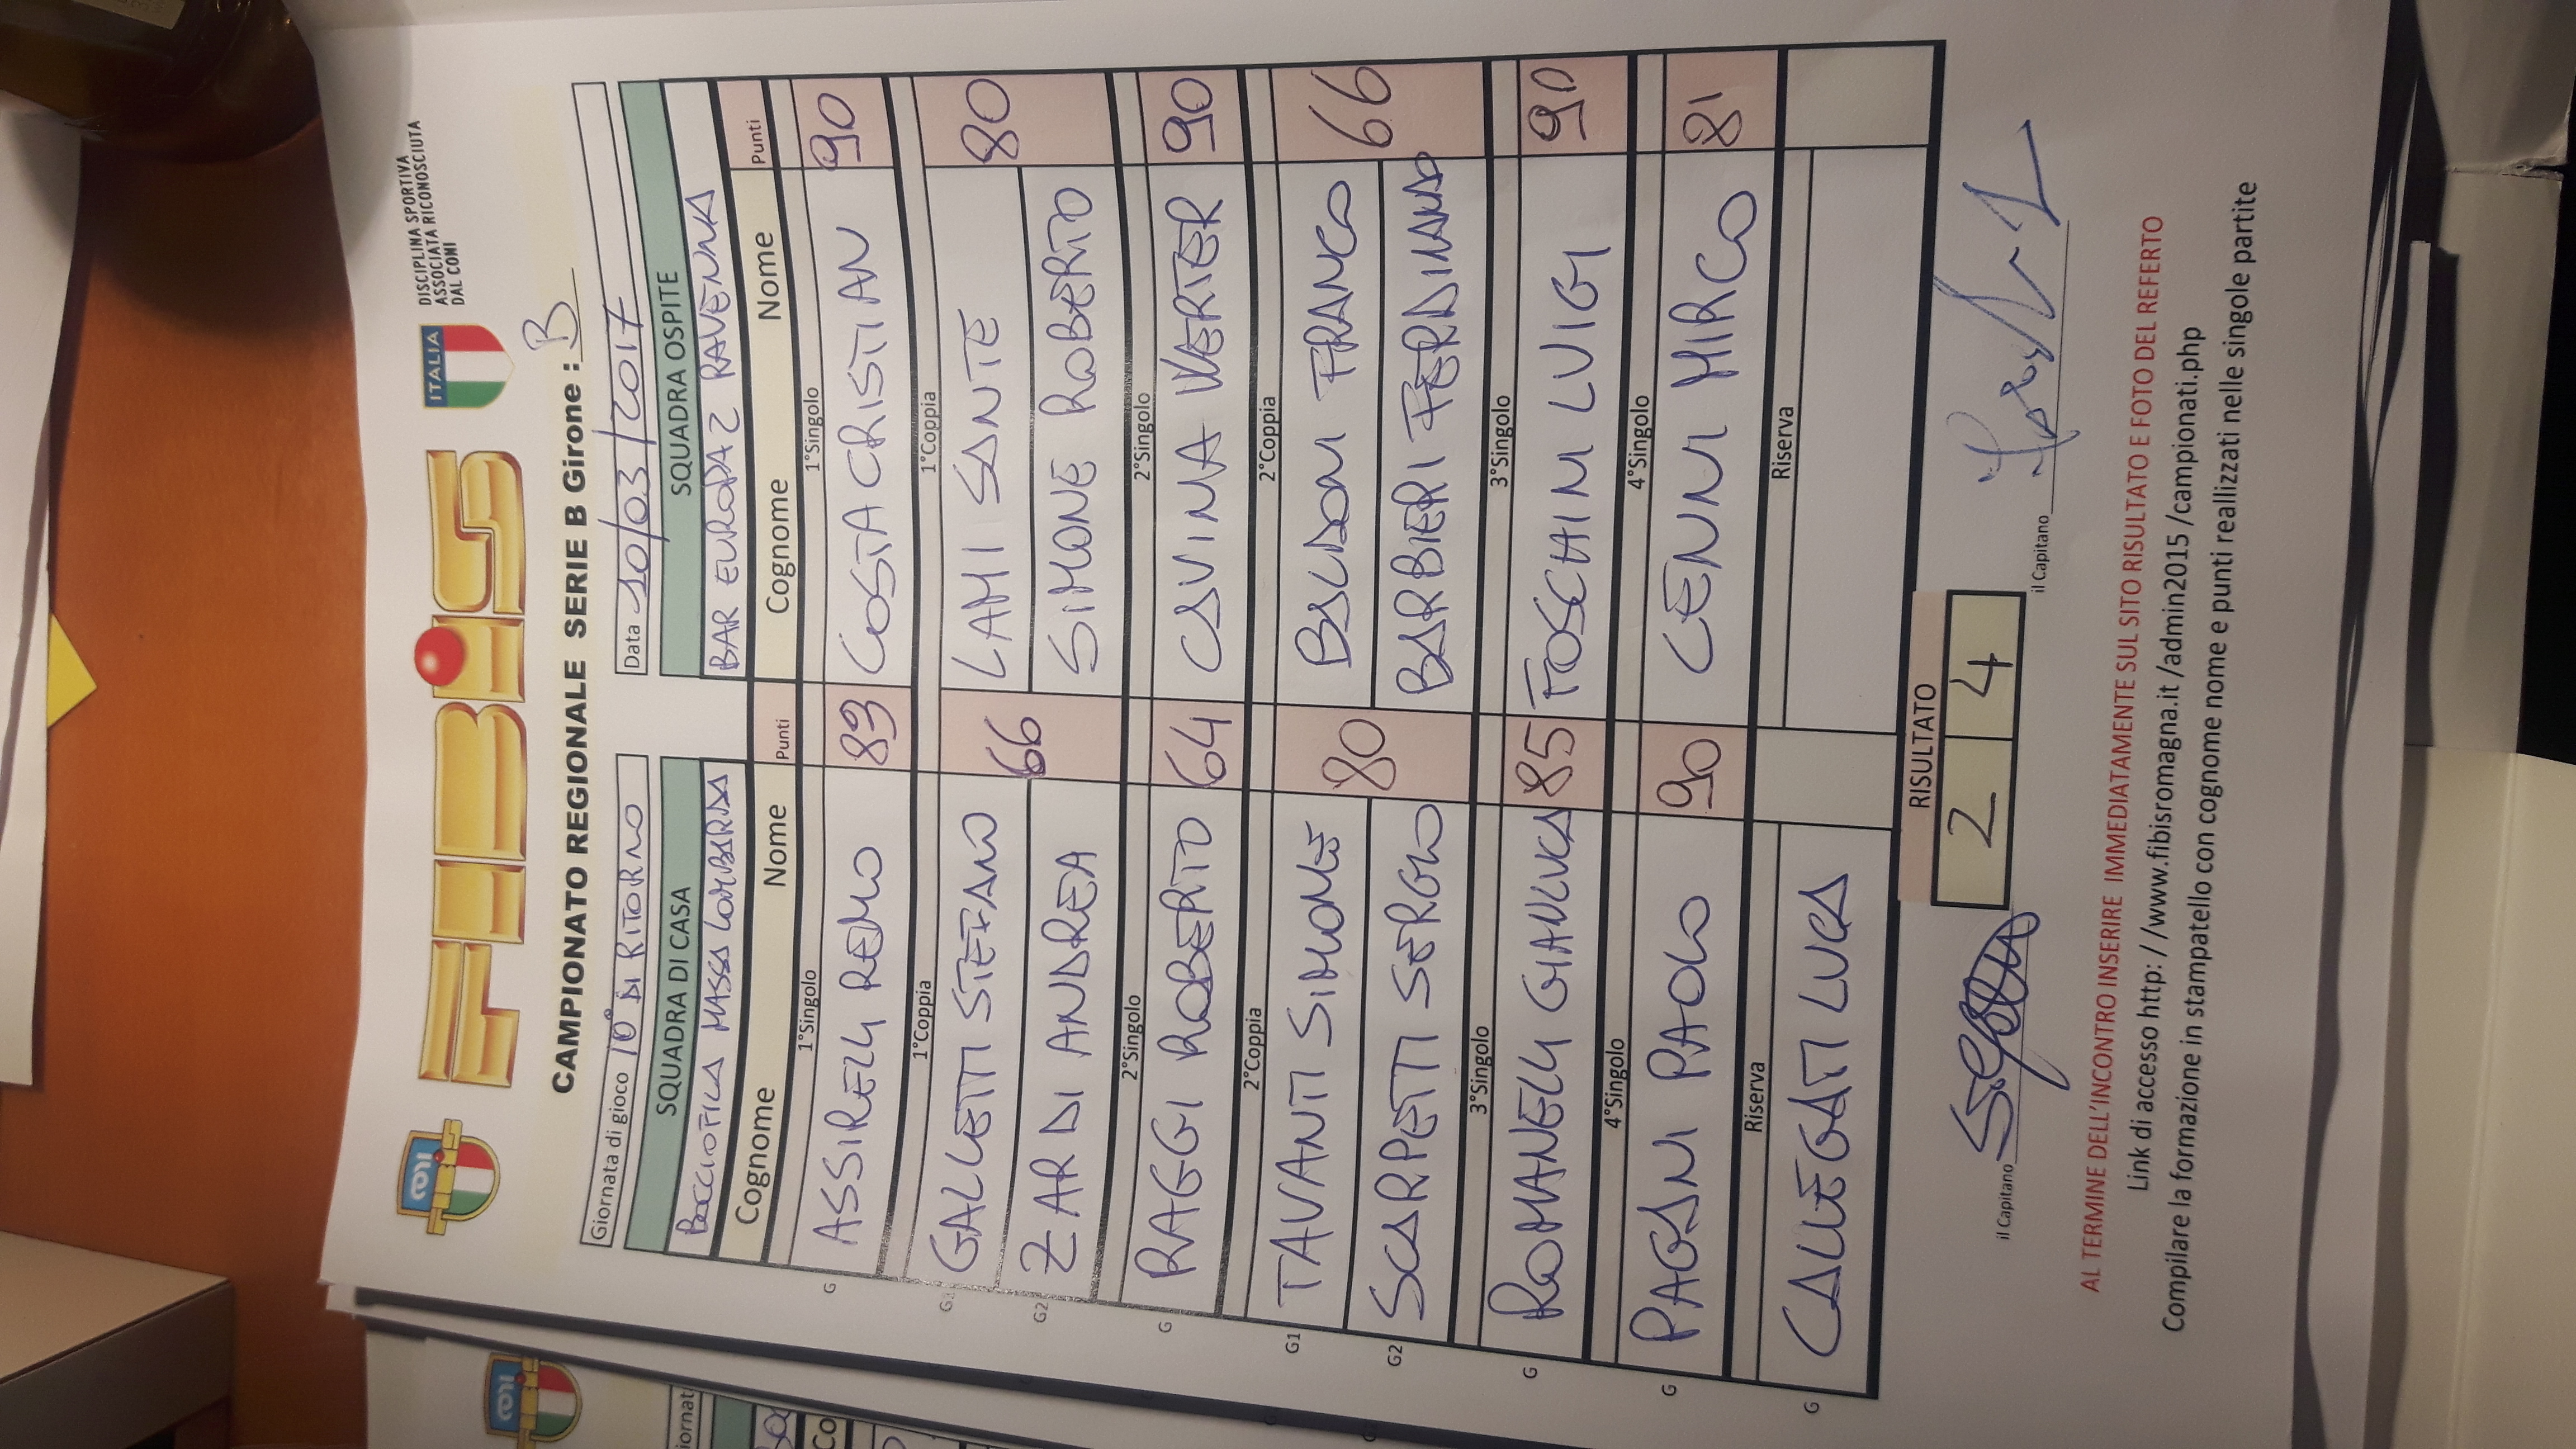 CONI
FIBiS
ITALIA
DISCIPLINA SPORTIVA
ASSOCIATA RICONOSCIUTA
DAL CONI
CAMPIONATO REGIONALE SERIE B Girone : B
Giornata di gioco 10° DI RITORNO
Data 10/03/2017
SQUADRA DI CASA
SQUADRA OSPITE
BOCCIOFILA MASSA LOMBARDA
BAR EUROPA 2 RAVENNA
Cognome Nome Punti
Cognome Nome Punti
1°Singolo
1°Singolo
G ASSIRELLI REMO 83
COSTA CRISTIAN 90
1°Coppia
1°Coppia
G1 GALLETTI STEFANO 66
LAMI SANTE 80
G2 ZARDI ANDREA
SIMONE ROBERTO
2°Singolo
2°Singolo
G RAGGI ROBERTO 64
CAVINA VERTER 90
2°Coppia
2°Coppia
G1 TAVANTI SIMONE 80
BALDONI FRANCO 66
G2 SCARPETTI SERGIO
BARBIERI FERDINANDO
3°Singolo
3°Singolo
G ROMANELLI GIANLUCA 85
FOSCHINI LUIGI 90
4°Singolo
4°Singolo
G PAGANI PAOLO 90
CENNI MIRCO 81
Riserva
Riserva
G CALLEGATI LUCA
RISULTATO
2 4
il Capitano
il Capitano
AL TERMINE DELL'INCONTRO INSERIRE IMMEDIATAMENTE SUL SITO RISULTATO E FOTO DEL REFERTO
Link di accesso http: //www.fibisromagna.it /admin2015 /campionati.php
Compilare la formazione in stampatello con cognome nome e punti reallizzati nelle singole partite